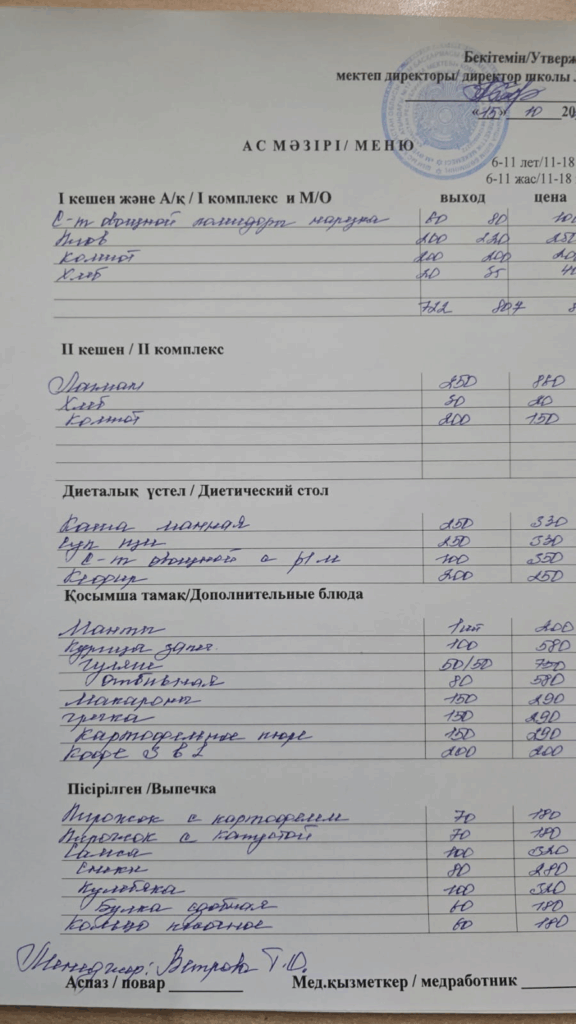 Бекітемін/Утверж
мектеп директоры/ директор школы
«15» 10 20
АС МӘЗІРІ/ МЕНЮ
6-11 лет/11-18
6-11 жас/11-18
I кешен және А/қ / I комплекс и М/О выход цена
С-т овощной помидоры нарезка 80 80 100
Плов 200 220 250
Компот 200 200 200
Хлеб 20 35 40
722 807 8
II кешен / II комплекс
Лагман 250 880
Хлеб 30 20
Компот 200 150
Диеталық үстел / Диетический стол
Каша манная 250 330
Суп щи 250 330
С-т овощной с р/м 100 350
Кефир 200 250
Қосымша тамақ/Дополнительные блюда
Манты 1шт 200
Курица запеч. 100 580
Гуляш 50/50 750
Отбивная 80 580
Макароны 150 290
гречка 150 290
Картофельное пюре 150 290
Кофе 3 в 1 200 200
Пісірілген /Выпечка
Пирожок с картофелем 70 180
Пирожок с капустой 70 180
Самса 100 320
Счеки 80 280
Кулебяка 100 320
Булка сдобная 60 180
Кольцо песочное 60 180
Менеджер: Ветрова Т.О.
Аспаз / повар Мед.қызметкер / медработник